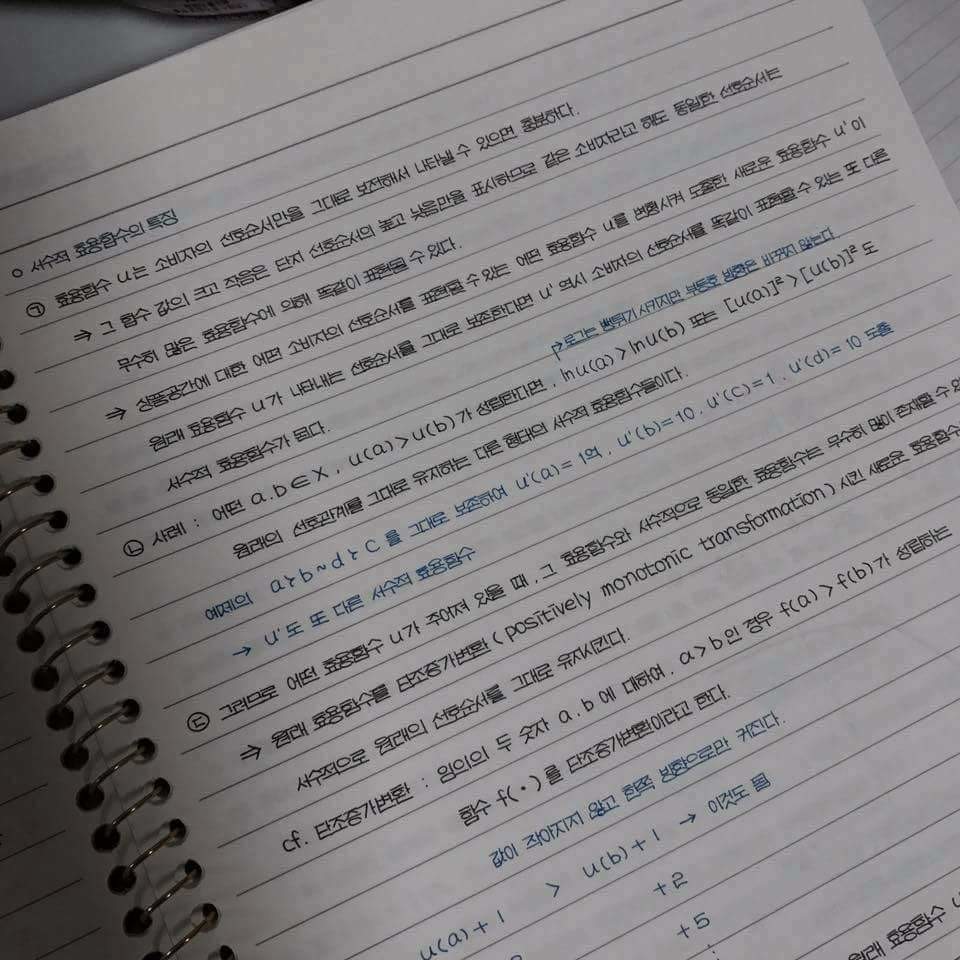 ○ 서수적 효용함수의 특징
㉠ 효용함수 u는 소비자의 선호순서만을 그대로 보전해서 나타낼 수 있으면 충분하다.
⇒ 그 함수 값의 크고 작음은 단지 선호순서의 높고 낮음만을 표시하므로 같은 소비자라고 해도 동일한 선호순서는
무수히 많은 효용함수에 의해 똑같이 표현될 수 있다.
⇒ 상품공간에 대한 어떤 소비자의 선호순서를 표현할 수 있는 어떤 효용함수 u를 변형시켜 도출한 새로운 효용함수 u'이
원래 효용함수 u가 나타내는 선호순서를 그대로 보존한다면 u' 역시 소비자의 선호순서를 똑같이 표현할 수 있는 또 다른
서수적 효용함수가 된다.
↱로그는 뻥튀기 시키지만 부등호 방향은 바꾸지 않는다
㉡ 사례 : 어떤 a.b∈X, u(a)>u(b)가 성립한다면, lnu(a)>lnu(b) 또는 [u(a)]²>[u(b)]² 도
원래의 선호관계를 그대로 유지하는 다른 형태의 서수적 효용함수들이다.
예제의 a≻b~d≻c를 그대로 보존하여 u'(a)=1억, u'(b)=10, u'(c)=1, u'(d)=10 도출
→ u'도 또 다른 서수적 효용함수
㉢ 그러므로 어떤 효용함수 u가 주어져 있을 때, 그 효용함수와 서수적으로 동일한 효용함수는 무수히 많이 존재할 수 있
⇒ 원래 효용함수를 단조증가변환(positively monotonic transformation) 시킨 새로운 효용함수
서수적으로 원래의 선호순서를 그대로 유지시킨다.
cf. 단조증가변환 : 임의의 두 숫자 a.b에 대하여, a>b인 경우 f(a)>f(b)가 성립하는
함수 f(•)를 단조증가변환이라고 한다.
값이 작아지지 않고 한쪽 방향으로만 커진다.
u(a)+1 > u(b)+1 → 이것도 됨
+2
+5
원래 효용함수 u